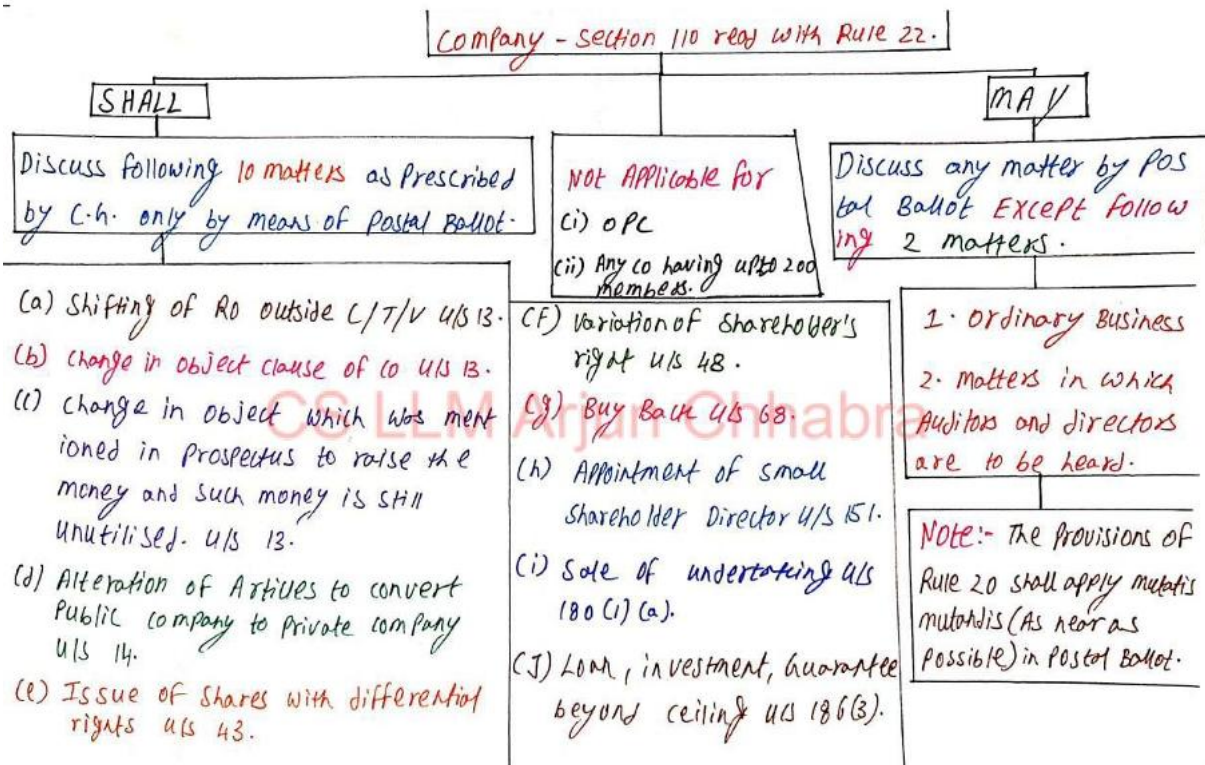 Company - Section 110 read with Rule 22.
SHALL
Discuss following 10 matters as prescribed
by C.G. only by means of Postal Ballot.
(a) Shifting of RO outside C/T/V u/s 13.
(b) Change in object clause of co u/s 13.
(c) Change in object which was ment
ioned in prospectus to raise the
money and such money is still
unutilised. u/s 13.
(d) Alteration of Articles to convert
Public company to private company
u/s 14.
(e) Issue of shares with differential
rights u/s 43.
Not Applicable for
(i) OPC
(ii) Any co having upto 200
members.
(f) Variation of Shareholder's
right u/s 48.
(g) Buy Back u/s 68.
(h) Appointment of small
Shareholder Director u/s 151.
(i) Sale of undertaking u/s
180(1)(a).
(J) Loan, investment, Guarantee
beyond ceiling u/s 186(3).
MAY
Discuss any matter by Pos
tal Ballot EXCEPT follow
ing 2 matters.
1. Ordinary Business
2. matters in which
Auditors and directors
are to be heard.
Note:- The provisions of
Rule 20 shall apply mutatis
mutandis (As near as
possible) in Postal Ballot.
CS LLM Arjun Chhabra